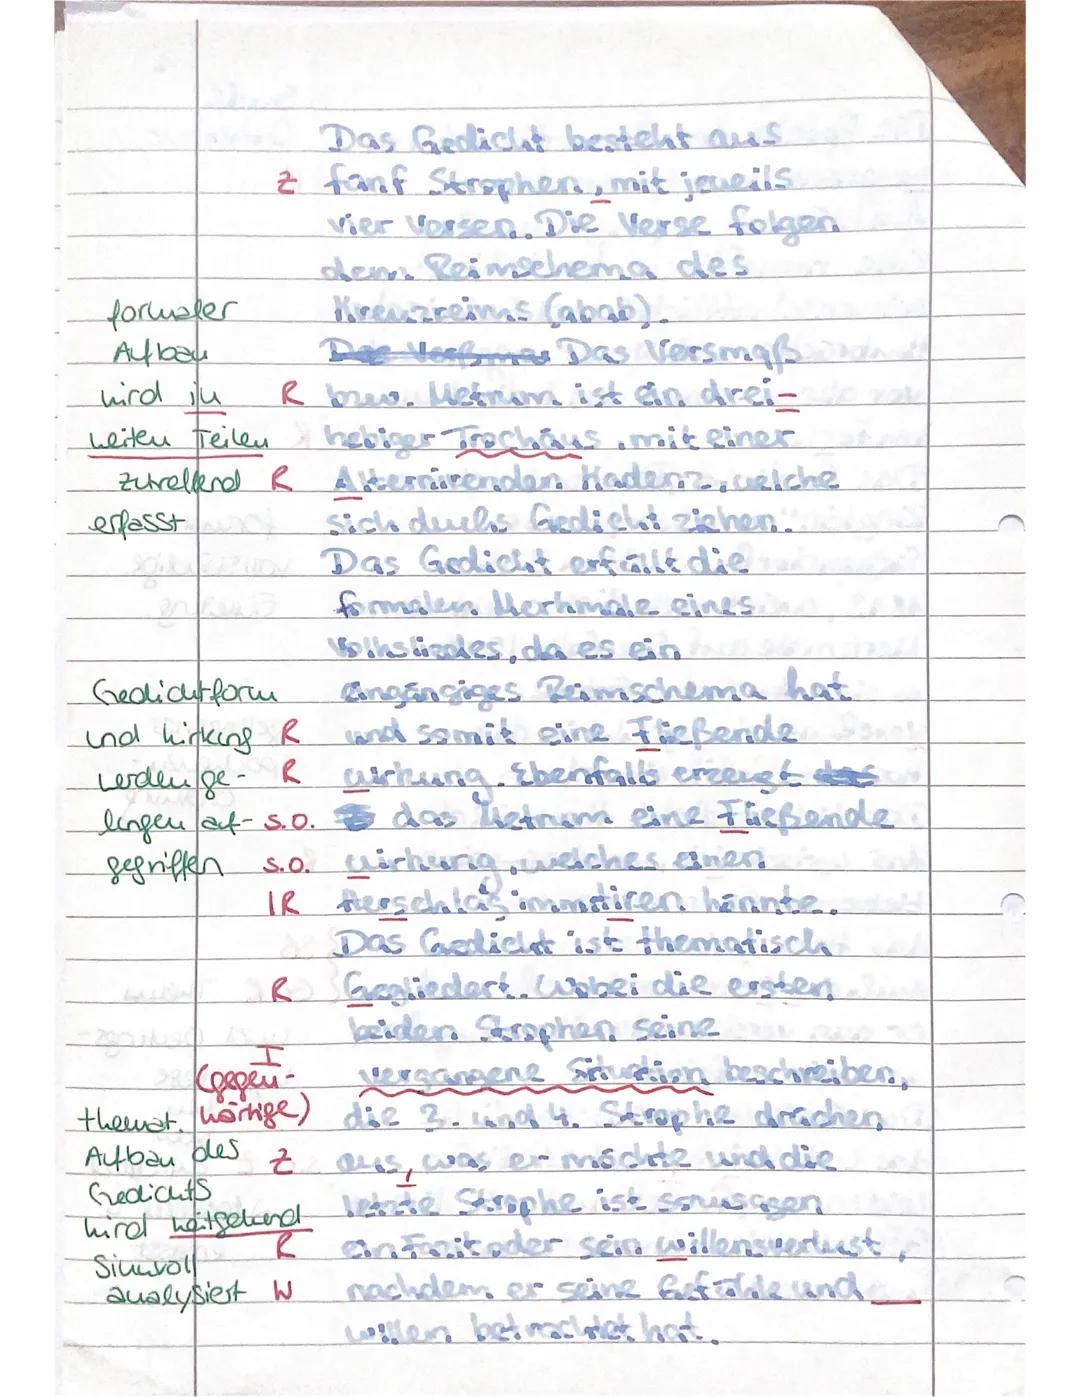 Das Gedicht besteht aus
Z fünf Strophen, mit jeweils
vier Versen. Die Verse folgen
dem Reimschema des
formaler Kreuzreims (abab).
Aufbau Das Versmaß
wird in R bzw. Metrum ist ein drei-
weiten Teilen R hebiger Trochäus, mit einer
zutreffend R Alternirenden Kadenz, welche
erfasst sich durchs Gedicht ziehen.
Das Gedicht erfüllt die
formalen Merkmale eines
Volksliedes, da es ein
Gedichtform eingängiges Reimschema hat
und Wirkung R und somit eine Fließende
werden ge- R wirkung. Ebenfalls erzeugt das
lungen auf- s.o. das Metrum eine Fließende
gegriffen s.o. wirkung, welches einen
IR Herschlag immitiren könnte.
Das Gedicht ist thematisch
R Gegliedert. Wobei die ersten
beiden Strophen seine
I
(gegen- vergangene Situation beschreiben,
themat. wärtige) die 3. und 4. Strophe drücken
Aufbau des Z aus, was er möchte und die
Gedichts letzte Strophe ist sozusagen
wird weitgehend R ein Fazit oder sein willensverlust,
Sinnvoll
analysiert W nachdem er seine Gefühle und
willen betrachtet hat.